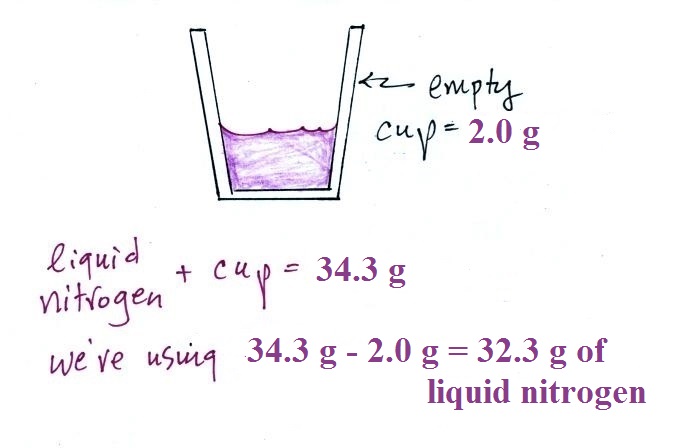 empty
cup = 2.0 g
liquid
nitrogen + cup = 34.3 g
we're using 34.3 g - 2.0 g = 32.3 g of
liquid nitrogen